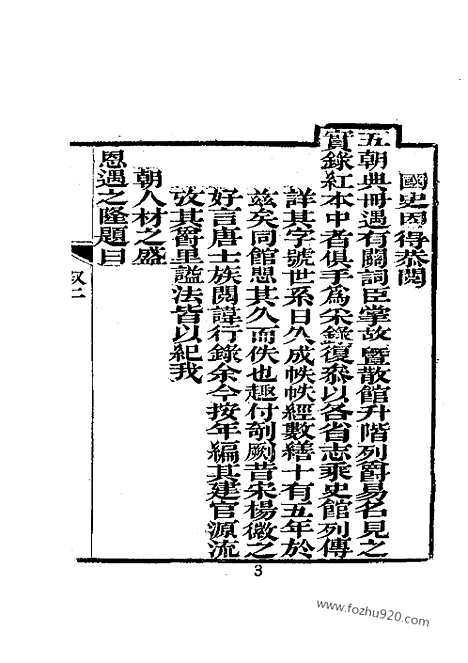 國史因得恭閱
五朝典冊遇有關詞臣掌故暨散館升階列爵易名見之
實錄紅本中者俱手為宋錄復叅以各省志乘史館列傳
詳其字號世系日久成帙帙經數繕十有五年於
茲矣同館恖其久而佚也趣付剞劂昔宋楊徽之
好言唐士族閱諱行錄余今按年編其建官源流
攷其爵里謚法皆以紀我
朝人材之盛
恩遇之隆題曰
叙二
3
www.fozhu920.com